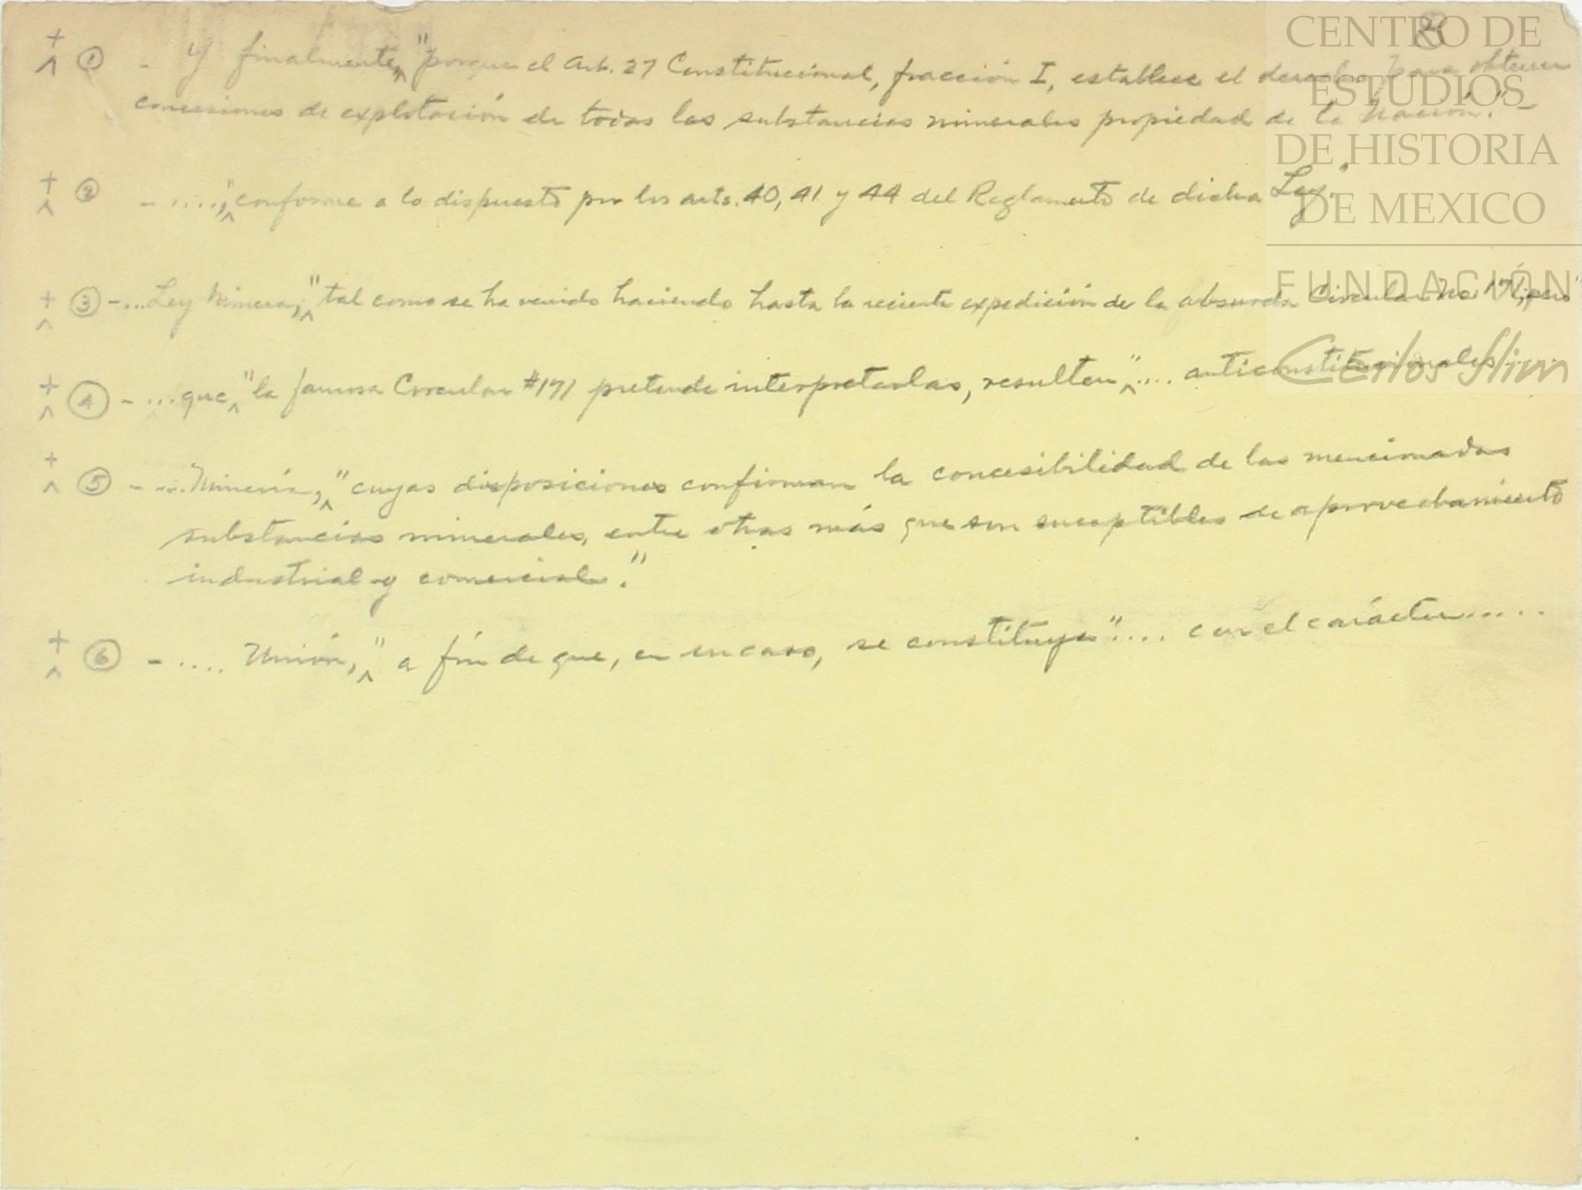 CENTRO DE
ESTUDIOS
DE HISTORIA
DE MEXICO
FUNDACIÓN
Carlos Slim
+ ^ ① - Y finalmente, ^ "porque el Art. 27 Constitucional, fracción I, establece el derecho para obtener
concesiones de explotación de todas las substancias minerales propiedad de la Nación." -
+ ^ ② - ....., ^ "conforme a lo dispuesto por los arts. 40, 41 y 44 del Reglamento de dicha Ley."
+ ^ ③ - ... Ley Minera, ^ "tal como se ha venido haciendo hasta la reciente expedición de la absurda Circular No 171, pero"
+ ^ ④ - ... que ^ "la famosa Circular #171 pretende interpretarlas, resulten" ^ .... anticonstitucionales ....
+ ^ ⑤ - ... Minería, ^ "cuyas disposiciones confirman la concesibilidad de las mencionadas
substancias minerales, entre otras más que son suceptibles de aprovechamiento
industrial y comercial."
+ ^ ⑥ - .... Unión, ^ " a fín de que, en su caso, se constituya" .... con el carácter .....